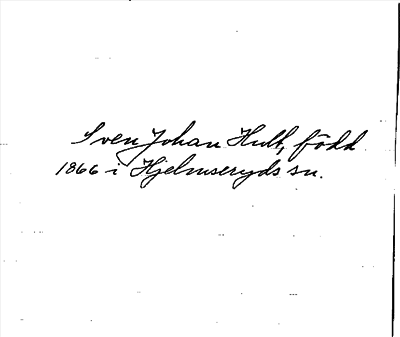 Sven Johan Hult, född
1866 i Hjelmseryds sn.